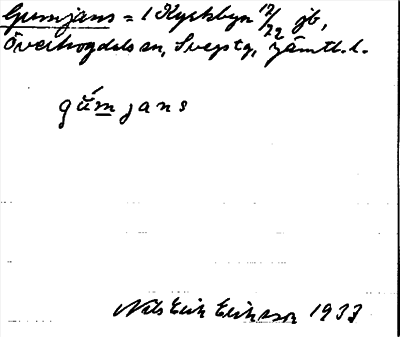 Gumjans = 1 Kyrkbyn 17/72 jb,
Överhogdals sn, Svegs tg, Jämtl. l.
gúmjans
Nils Erik Eriksson 1933